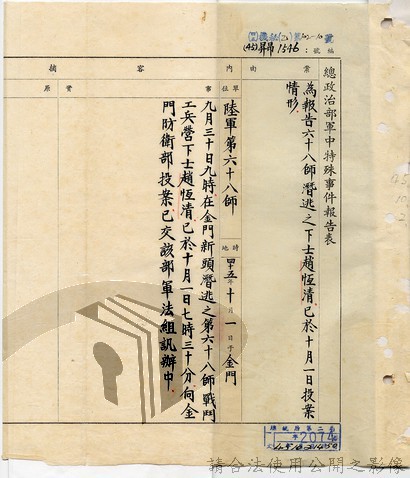 編號：
(45)昇昂1546號
總政治部軍中特殊事件報告表
案由
為報告六十八師潛逃之下士趙恆清已於十月一日投案
情形
內容摘
單位
陸軍第六十八師
時地
四十五年十月一日于金門
事實
九月三十日九時在金門新頭潛逃之第六十八師戰鬥
工兵營下士趙恆清已於十月一日七時三十分向金
門防衛部投案已交該部軍法組訊辦中
原
2074
請合法使用公開之影像